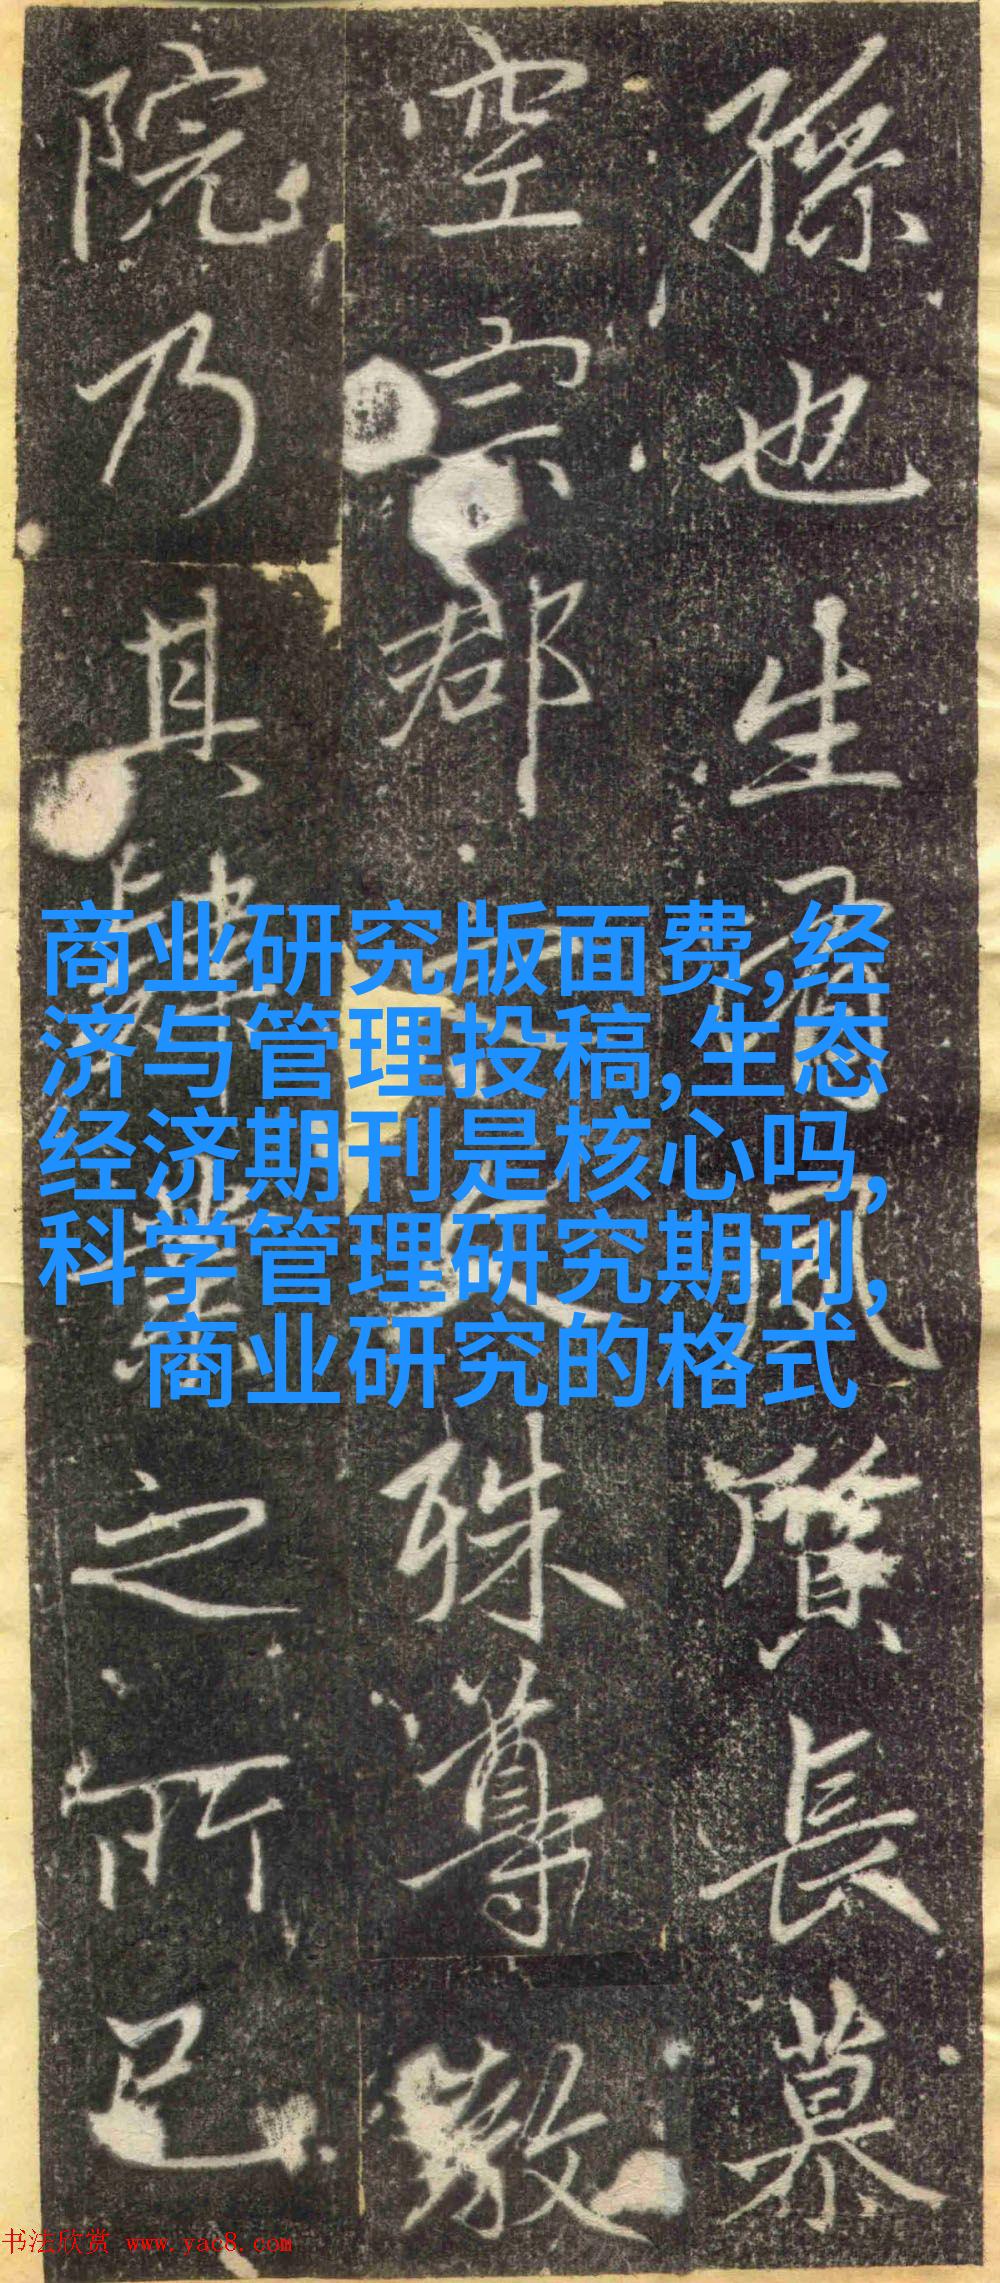 孫也生風質長慕
空宗郡殊尊
院乃其肄業之所已
商业研究版面费,经
济与管理投稿,生态
经济期刊是核心吗,
科学管理研究期刊,
商业研究的格式
书法欣赏 www.yac8.com